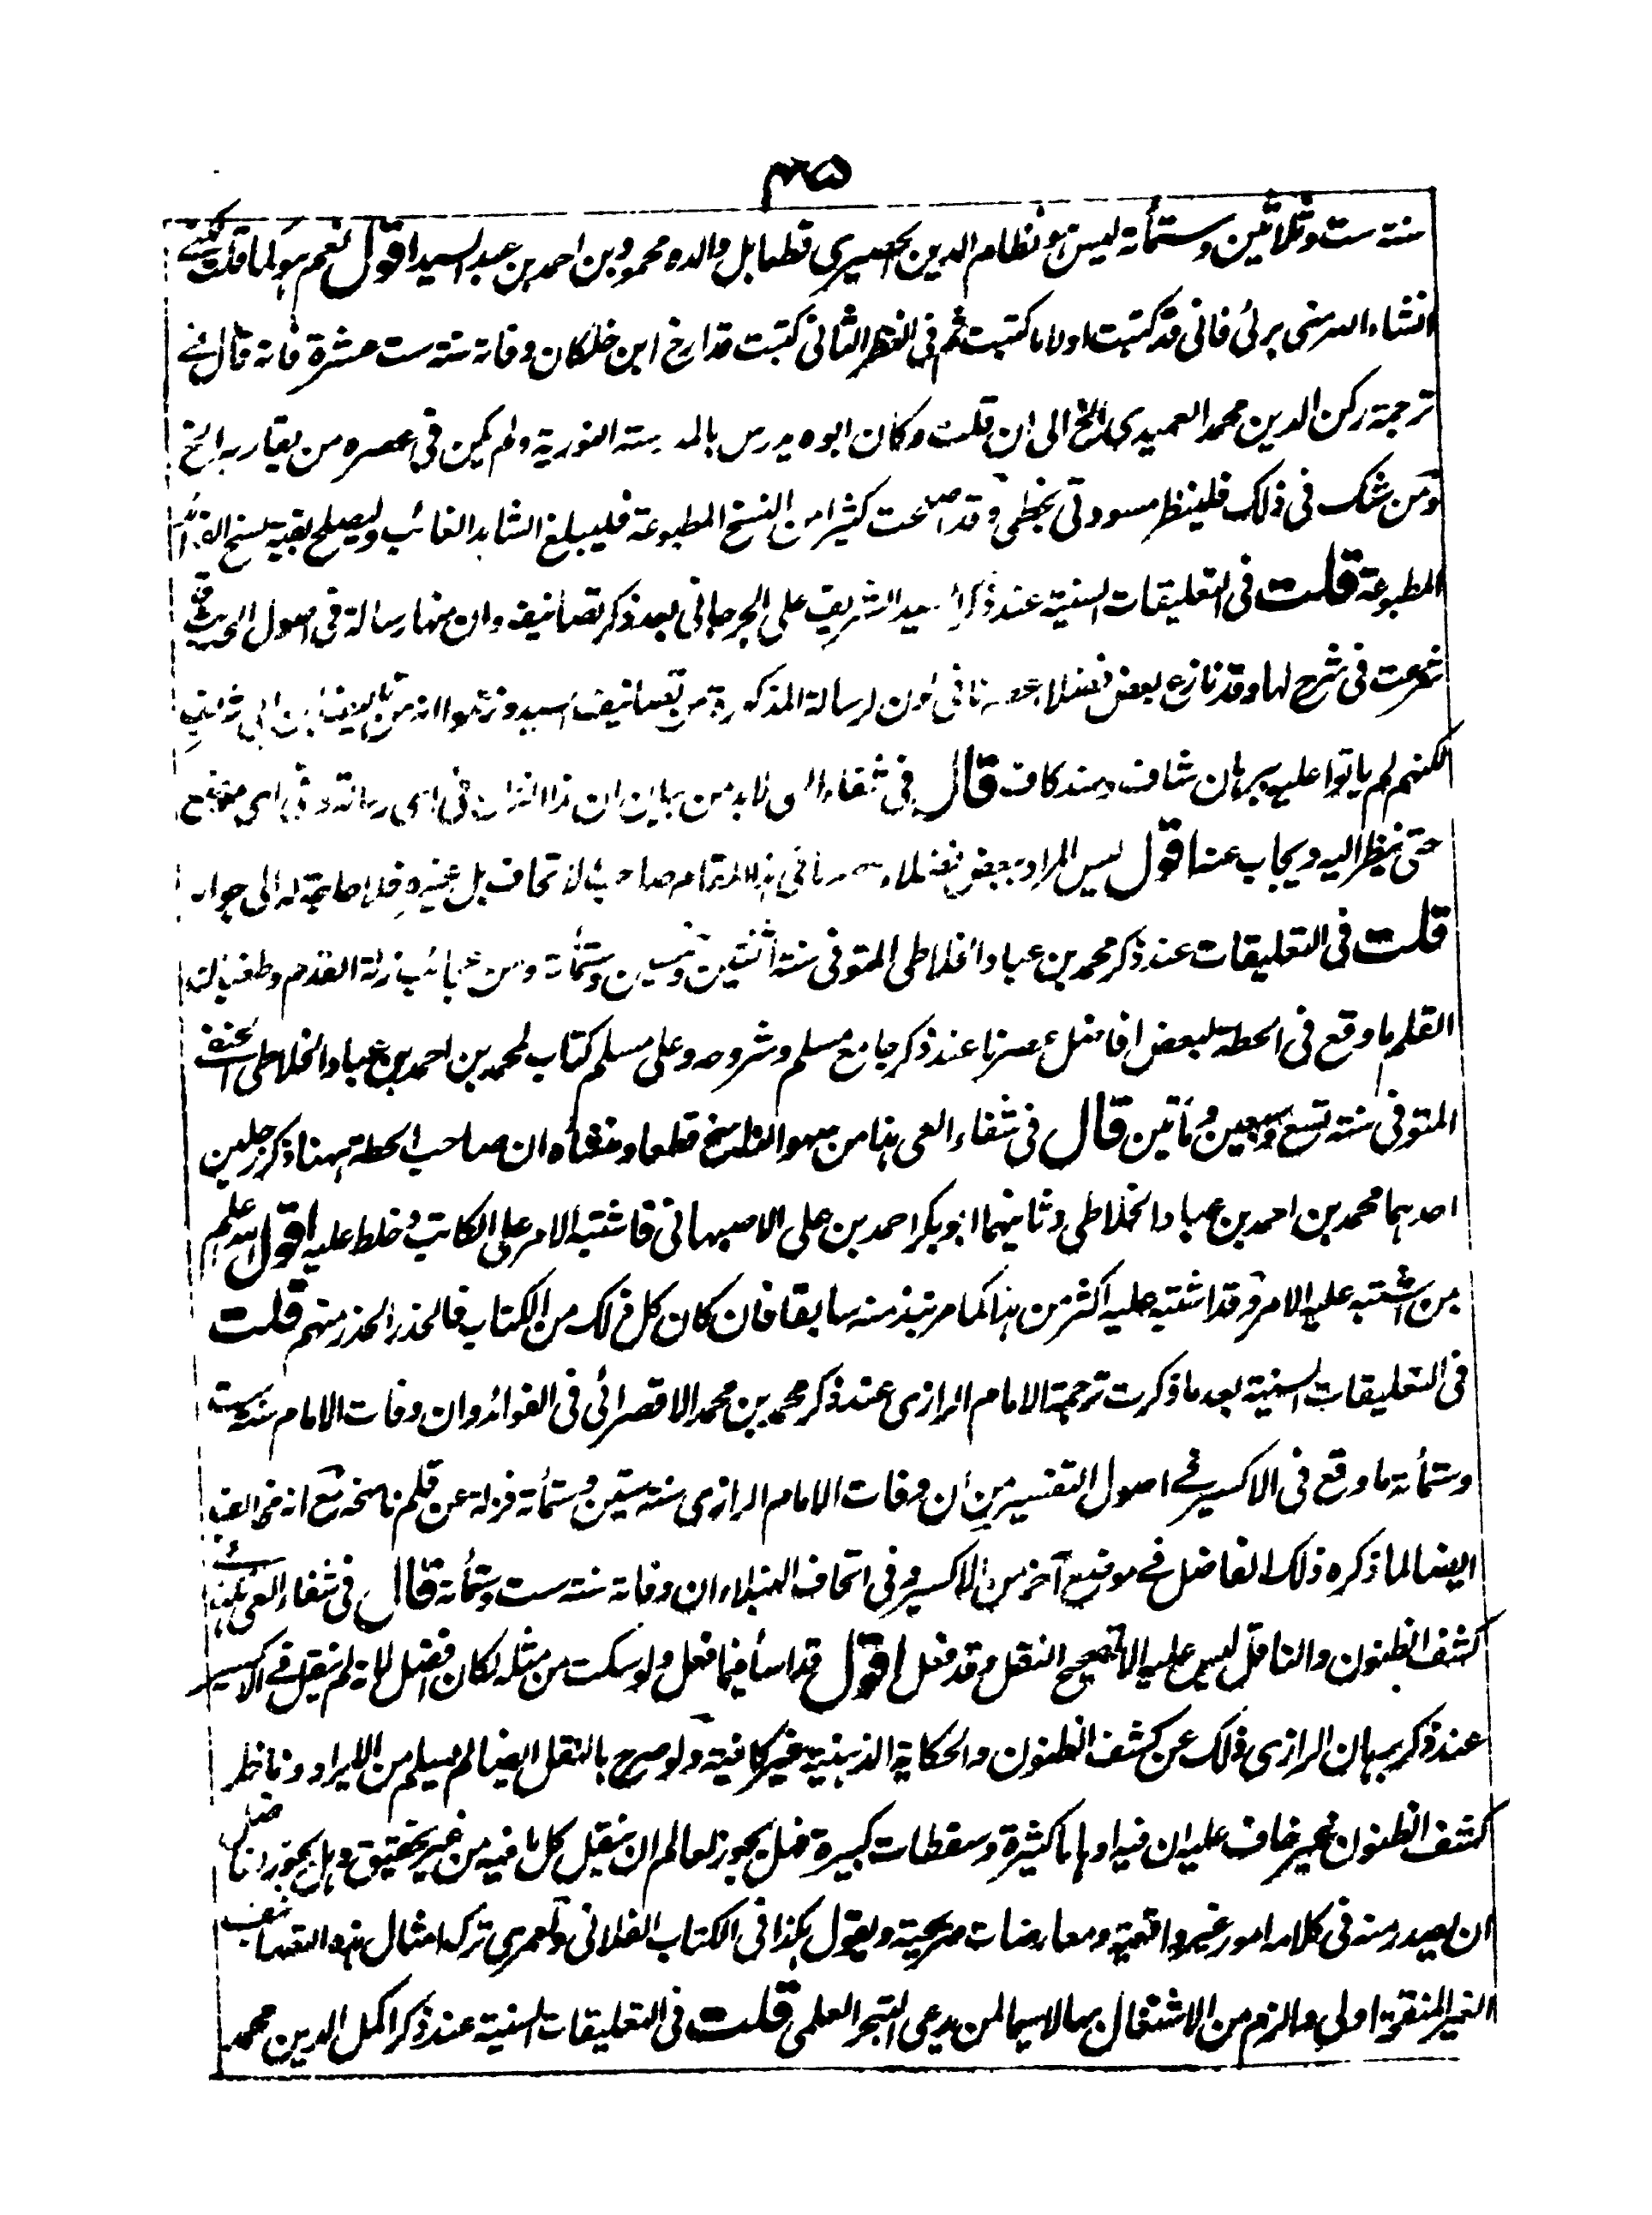 ٤٥
سنة ست وثلاثين وستمأته ليس هو نظام الدين الحصيري قطعا بل والده محمود بن احمد بن عبد السيد اقول نعم هو كما قلت لكننى
انشاء الله منى برئ فانى قد كتبت اولا ما كتبت ثم فى النظر الثانى كتبت قد ارخ ابن خلكان وفاته سنة ست عشرة فانه قال فى
ترجمة ركن الدين محمد العميدى الخ الى ان قلت وكان ابوه يدرس بالمدرسة النورية ولم يكن فى عصره من يقاربه الخ
ومن شك فى ذلك فلينظر مسودتى بخطى وقد اصلحت كثيرا من النسخ المطبوعة فليبلغ الشاهد الغائب وليصلح بقية نسخ الفوائد
المطبوعة قلت فى التعليقات السنية عند ذكر السيد الشريف على الجرجانى بعد ذكر تصانيفه وان منها رسالة فى اصول الحديث قد
شرعت فى شرح لها وقد نازع بعض فضلاء عصرنا فى كون الرسالة المذكورة من تصانيف السيد وزعموا انه من
لكنهم لم ياتوا عليه ببرهان شاف وسند كاف قال فى شفاء العى لا بد من بيان ان هذا النزاع فى اى رسالة وفى اى موضع
حتى ينظر اليه ويجاب عنه اقول ليس المراد ببعض فضلاء عصرنا فى هذا المقام صاحب الاتحاف بل غيره فلا حاجة له الى جوابه
قلت فى التعليقات عند ذكر محمد بن عباد الخلاطى المتوفى سنة اثنتين وخمسين وستمأته ومن عجائب زلة القدم وطغيان
القلم ما وقع فى الحطة لبعض افاضل عصرنا عند ذكر جامع مسلم وشروحه وعلى مسلم كتاب لمحمد بن احمد بن عباد الخلاطى الحنفى
المتوفى سنة تسع وسبعين ومأتين قال فى شفاء العى هذا من سهو الناسخ قطعا ومنشأه ان صاحب الحطة ههنا ذكر رجلين
احدهما محمد بن احمد بن عباد الخلاطى وثانيهما ابو بكر احمد بن على الاصبهانى فاشتبه الامر على الكاتب وخلط عليه اقول الله عليم
بمن اشتبه عليه الامر وقد اشتبه عليه اكثر من هذا كما مر نبذ منه سابقا فان كان كل ذلك من الكتاب فالحذر الحذر منهم قلت
فى التعليقات السنية بعد ما ذكرت ترجمة الامام الرازى عند ذكر محمد بن محمد الاقصرائى فى الفوائد وان وفات الامام سنة ست
وستمأته ما وقع فى الاكسير فى اصول التفسير من ان وفات الامام الرازى سنة ستين وستمأته فزلة عن قلم ناسخه مع انه مخالف
ايضا لما ذكره ذلك الفاضل فى موضع آخر من الاكسير وفى اتحاف النبلاء ان وفاته سنة ست وستمأته قال فى شفاء العى هكذا فى
كشف الظنون والناقل ليس عليه الا تصحيح النقل وقد فعل اقول قد اسأ فيما فعل ولو سكت من مثله لكان افضل له لم ينقل فى الاكسير
عند ذكر برهان الرازى ذلك عن كشف الظنون والحكاية الذهنية غير كافية ولو صرح بالنقل ايضا لم يسلم من الايراد وناظر
كشف الظنون غير خاف عليه ان فيه اوهاما كثيرة وسقطات كبيرة فهل يجوز لعالم ان ينقل كل ما فيه من غير تحقيق وهل يجوز لفاضل
ان يصدر منه فى كلامه امور غير واقعية ومعارضات صريحية ويقول هكذا فى الكتاب الفلانى ولعمرى ترك امثال هذه التصانيف
الغير المنقحة اولى والزم من الاشتغال بها لا سيما لمن يدعى التبحر العلمى قلت فى التعليقات السنية عند ذكر اكمل الدين محمد